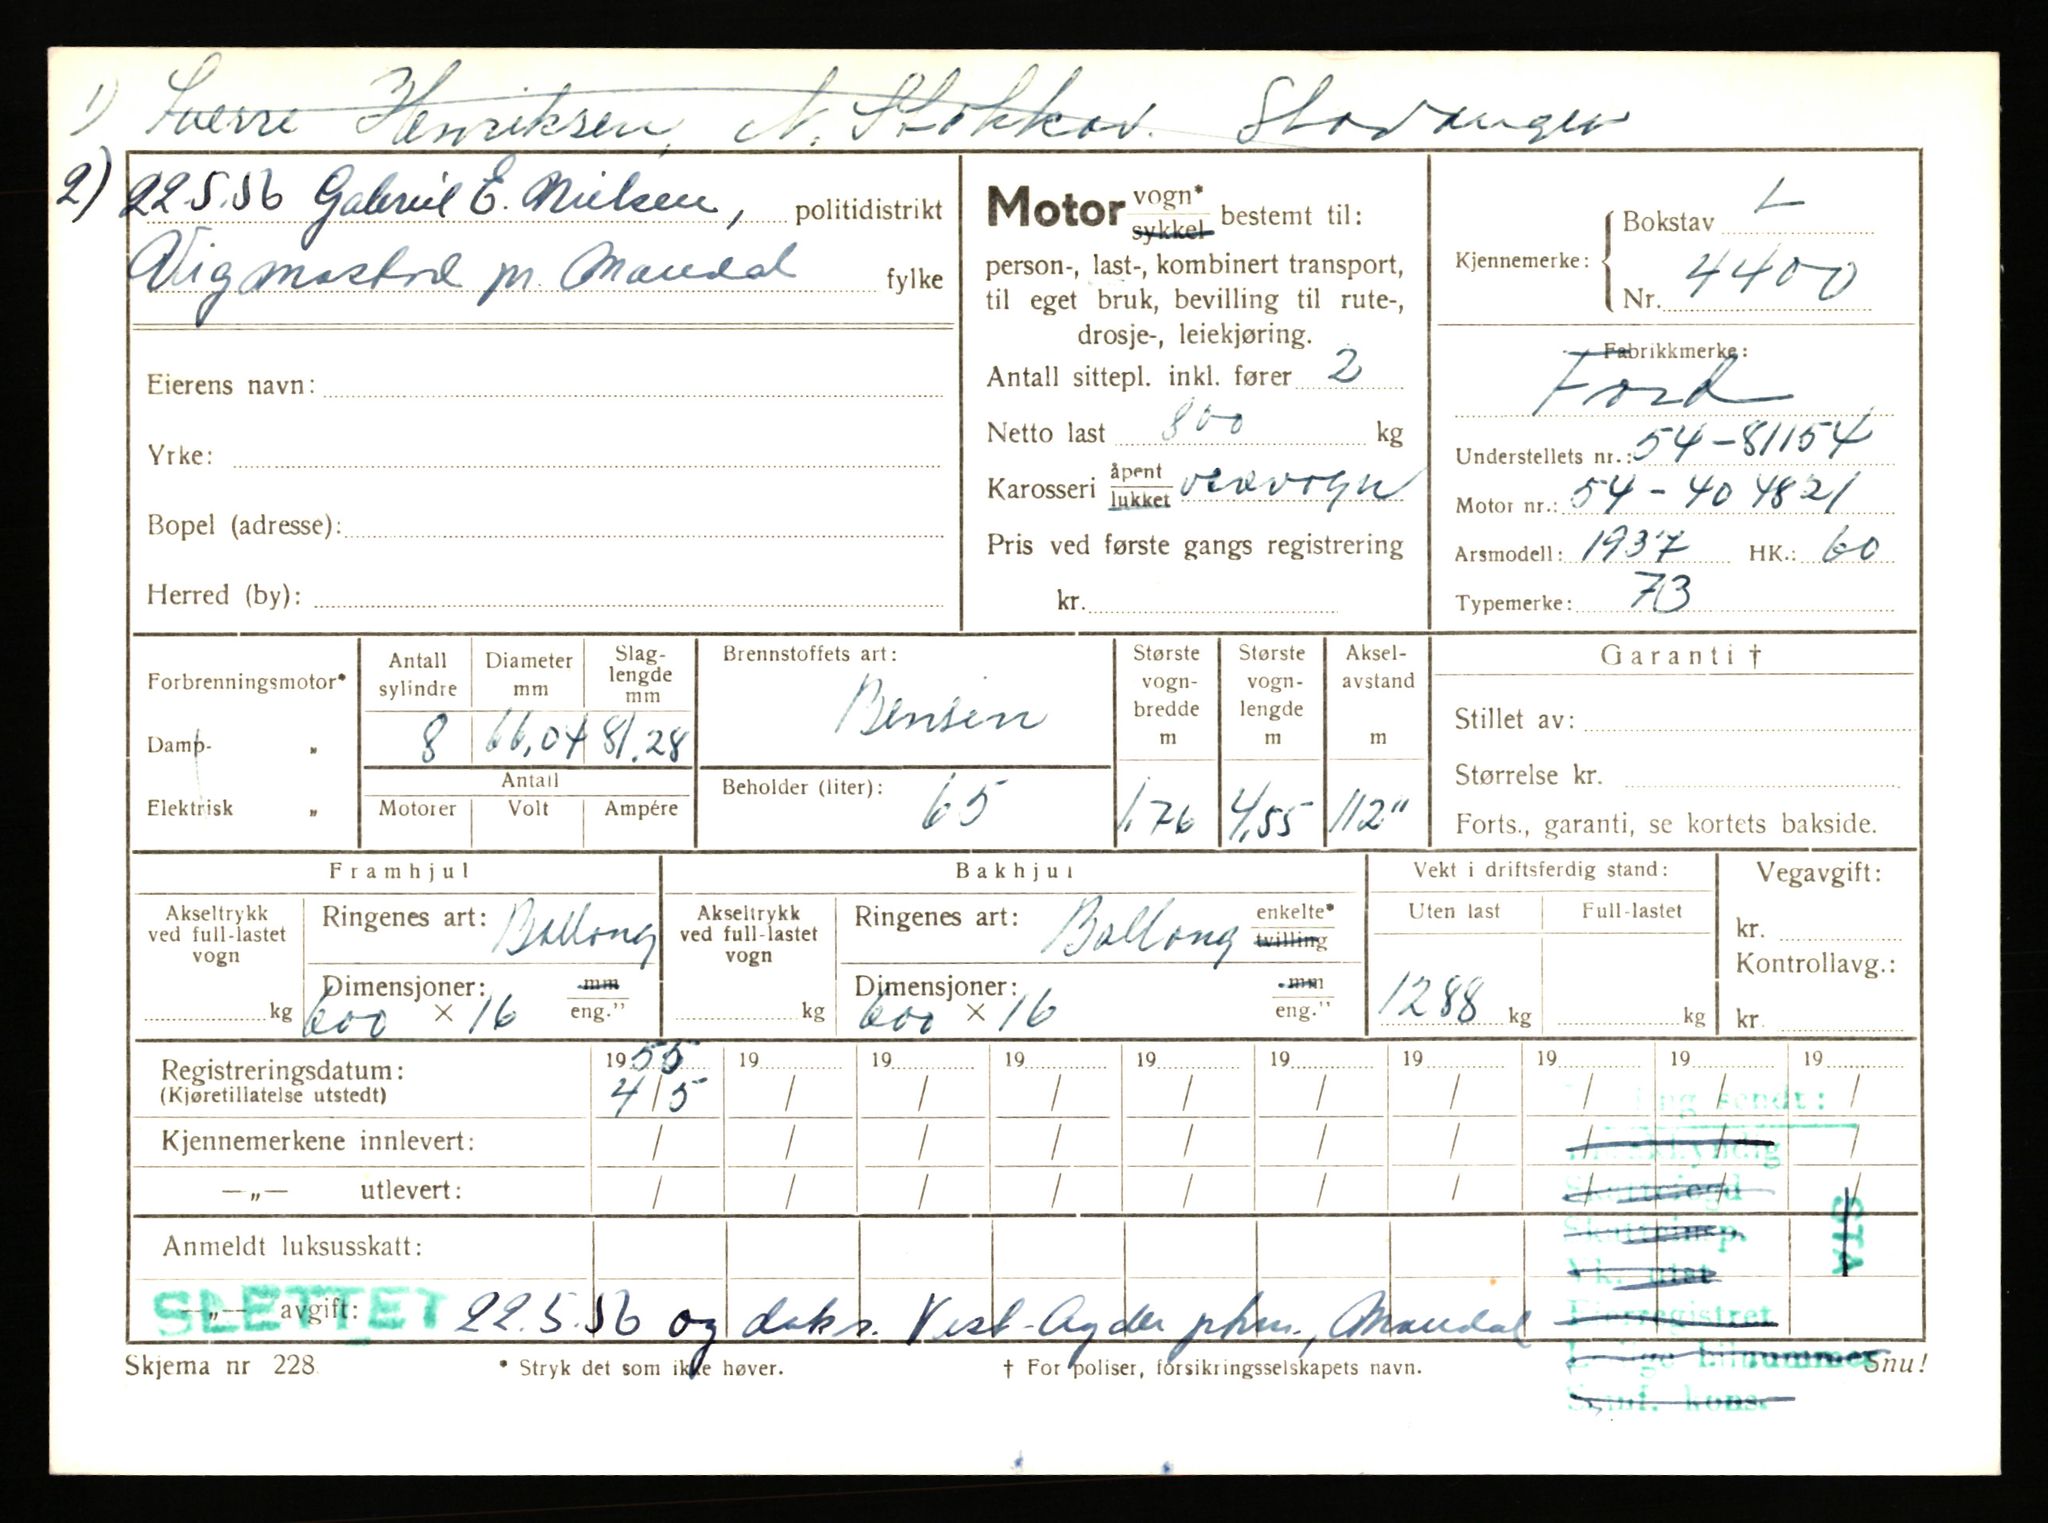 1) Sverre Henriksen, N. Stokkav. Stavanger
2) 22.5.56 Gabriel E. Nielsen, politidistrikt
Vigmostad pr. Mandal fylke
Eierens navn:
Yrke:
Bopel (adresse):
Herred (by):
Motor vogn* sykkel bestemt til:
person-, last-, kombinert transport,
til eget bruk, bevilling til rute-,
drosje-, leiekjøring.
Antall sittepl. inkl. fører 2
Netto last 800 kg
Karosseri åpent lukket varevogn
Pris ved første gangs registrering
kr.
Kjennemerke: Bokstav L
Nr. 4400
Fabrikkmerke:
Ford
Understellets nr.: 54-81154
Motor nr.: 54-404821
Arsmodell: 1937 HK.: 60
Typemerke: 73
Forbrenningsmotor*
Damp- „
Elektrisk „
Antall sylindre 8
Diameter mm 66,04
Slaglengde mm 81.28
Antall
Motorer Volt Ampére
Brennstoffets art:
Bensin
Beholder (liter): 65
Største vognbredde m 1,76
Største vognlengde m 4,55
Akselavstand m 112"
Garanti †
Stillet av:
Størrelse kr.
Forts., garanti, se kortets bakside.
Framhjul
Akseltrykk ved full-lastet vogn
kg
Ringenes art: Ballong
Dimensjoner: mm
600 × 16 eng."
Bakhjul
Akseltrykk ved full-lastet vogn
kg
Ringenes art: Ballong enkelte* tvilling
Dimensjoner: mm
600 × 16 eng."
Vekt i driftsferdig stand:
Uten last Full-lastet
1288 kg kg
Vegavgift:
kr.
Kontrollavg.:
kr.
Registreringsdatum: 1955 19 19 19 19 19 19 19 19 19
(Kjøretillatelse utstedt) 4/5 / / / / / / / / /
Kjennemerkene innlevert: / / / / / / / / / /
—„— utlevert: / / / / / / / / / /
Anmeldt luksusskatt:
—„— avgift:
SLETTET 22.5.56 og doks. Vest-Agder phm., Mandal
sendt:
STA
Eierregistret
Skjema nr 228
* Stryk det som ikke høver.
† For poliser, forsikringsselskapets navn.
Snu!